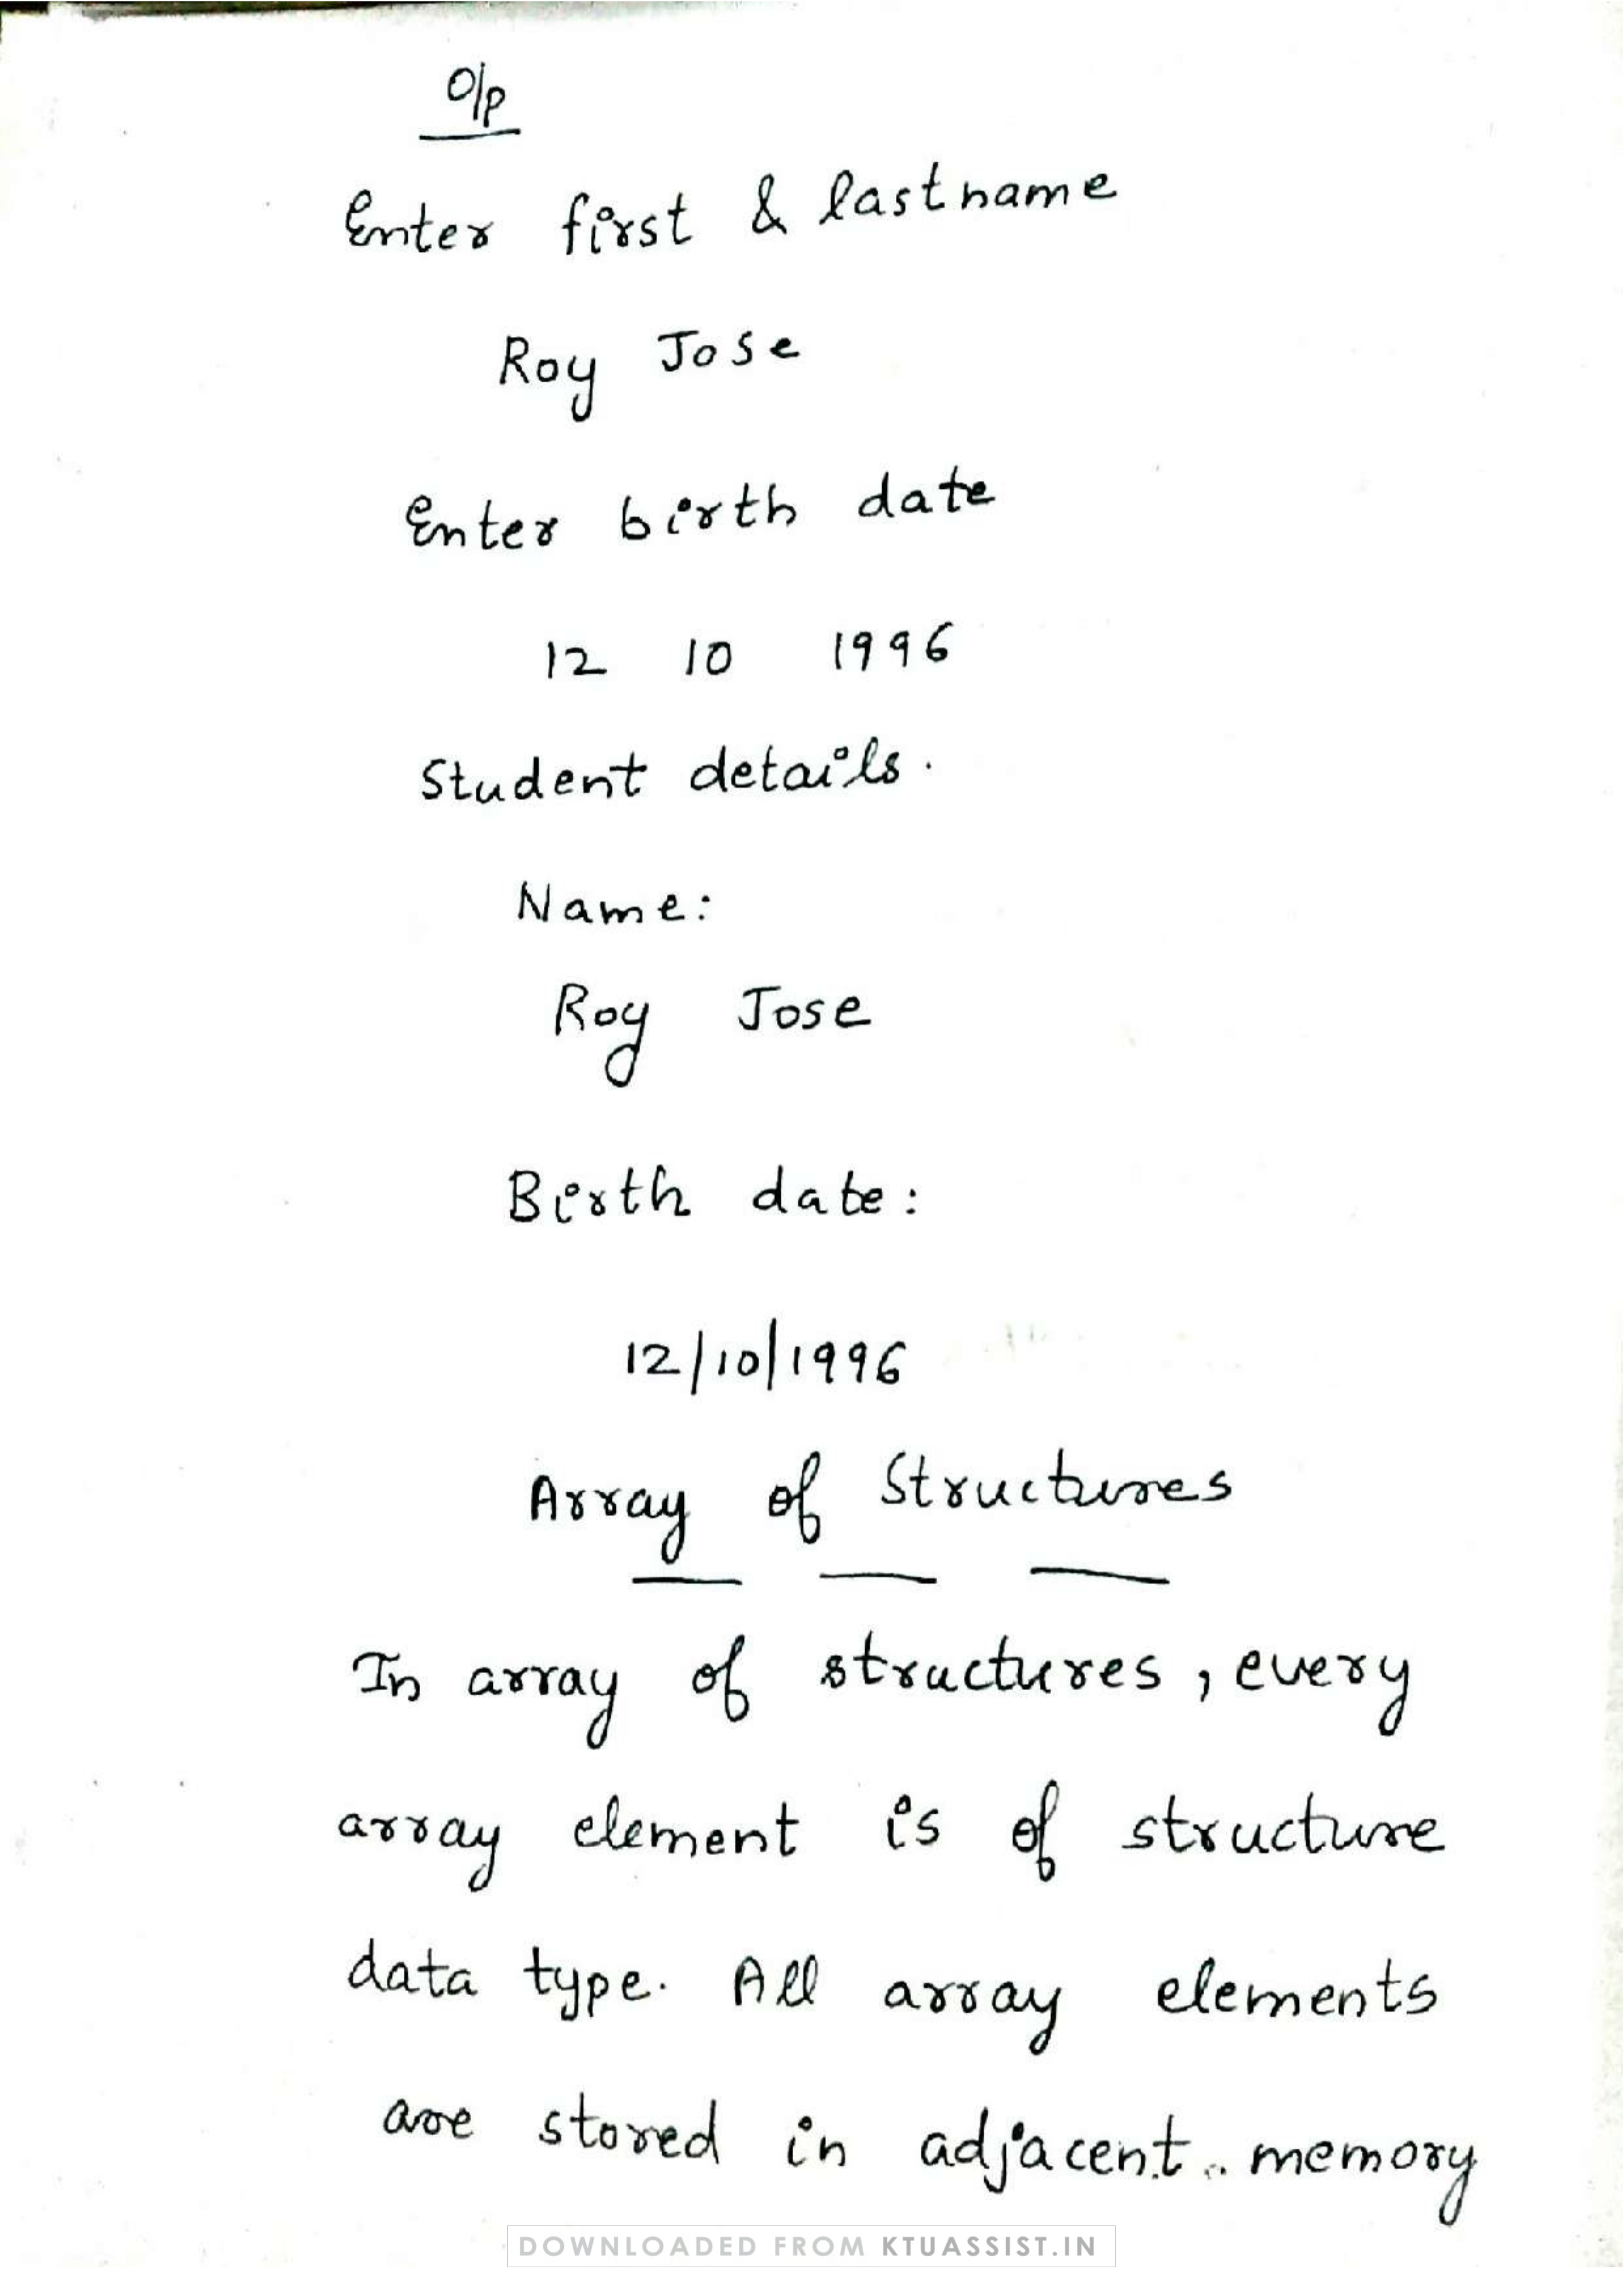 O/p
Enter first & lastname
Roy Jose
Enter birth date
12 10 1996
Student details.
Name:
Roy Jose
Birth date:
12/10/1996
Array of Structures
In array of structures, every
array element is of structure
data type. All array elements
are stored in adjacent memory
DOWNLOADED FROM KTUASSIST.IN